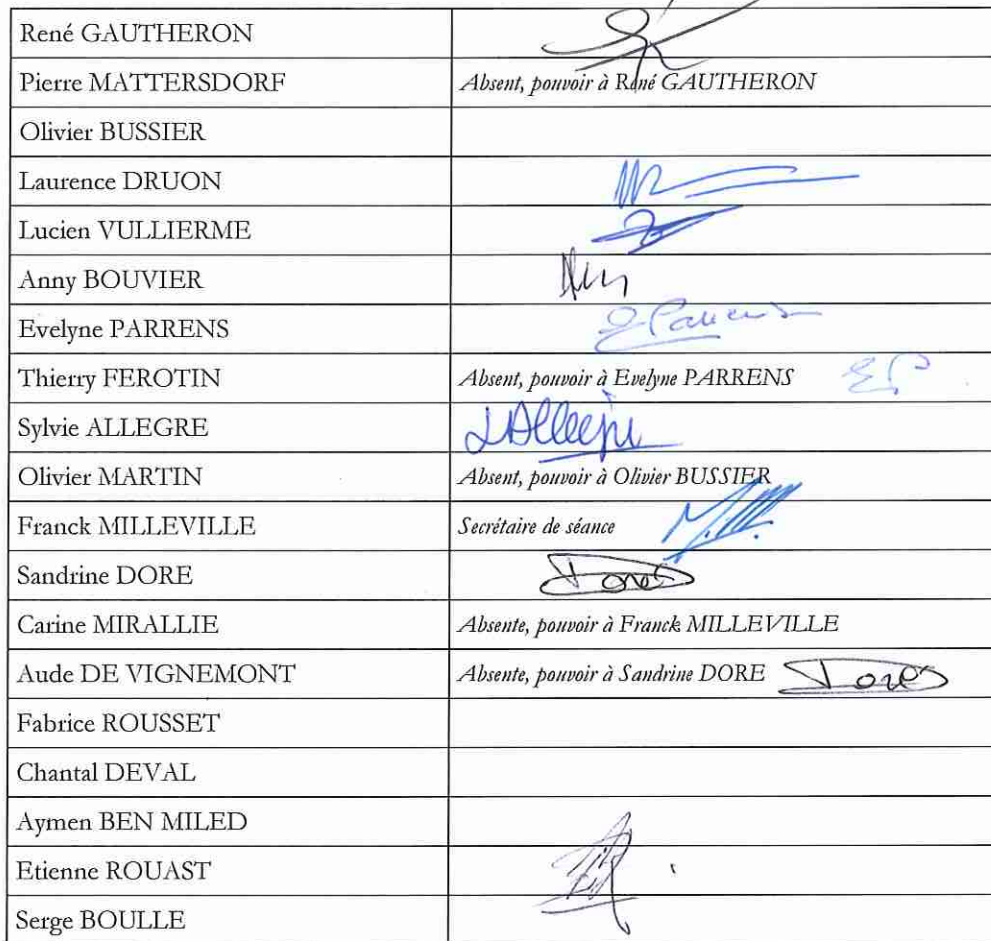 René GAUTHERON
Pierre MATTERSDORF Absent, pouvoir à René GAUTHERON
Olivier BUSSIER
Laurence DRUON
Lucien VULLIERME
Anny BOUVIER
Evelyne PARRENS
Thierry FEROTIN Absent, pouvoir à Evelyne PARRENS EP
Sylvie ALLEGRE
Olivier MARTIN Absent, pouvoir à Olivier BUSSIER
Franck MILLEVILLE Secrétaire de séance
Sandrine DORE
Carine MIRALLIE Absente, pouvoir à Franck MILLEVILLE
Aude DE VIGNEMONT Absente, pouvoir à Sandrine DORE
Fabrice ROUSSET
Chantal DEVAL
Aymen BEN MILED
Etienne ROUAST
Serge BOULLE